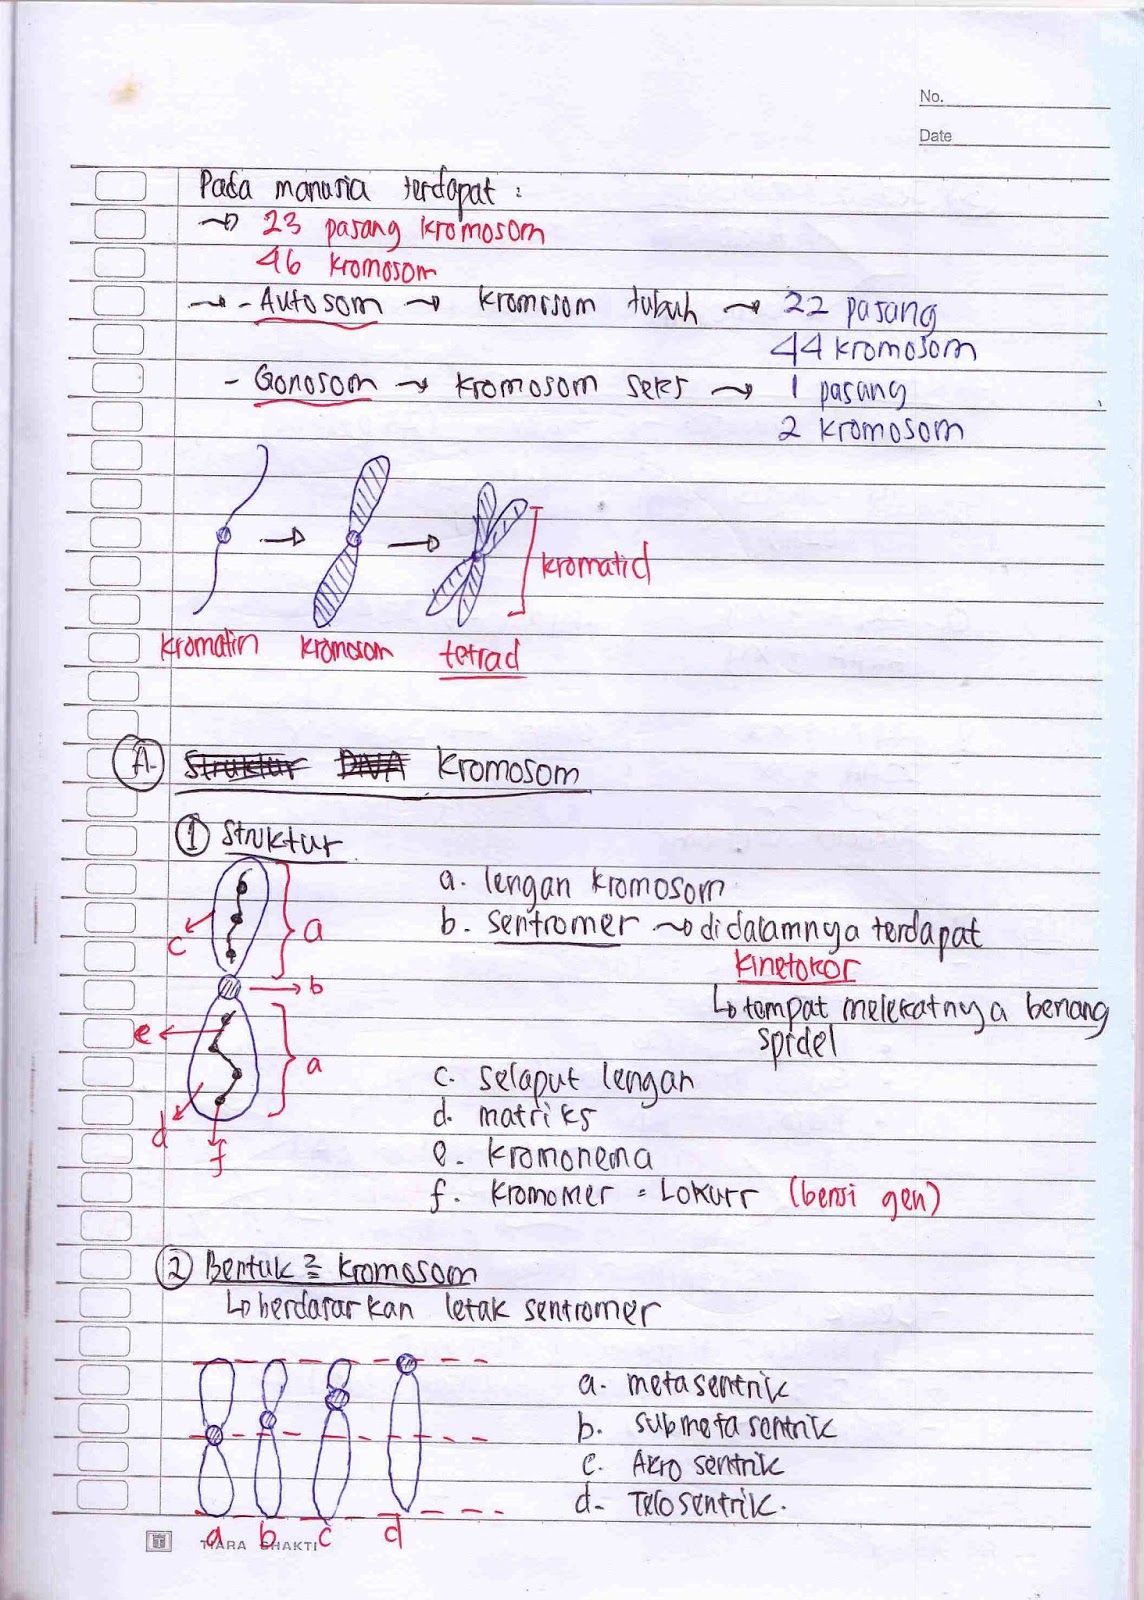 No.
Date
Pada manusia terdapat :
→ 23 pasang kromosom
46 kromosom
→ - Autosom → kromosom tubuh → 22 pasang
44 kromosom
- Gonosom → kromosom seks → 1 pasang
2 kromosom
kromatid
kromatin kromosom tetrad
A. Struktur DNA Kromosom
1 Struktur
a. lengan kromosom
b. sentromer → didalamnya terdapat
kinetokor
↳ tempat melekatnya benang
spidel
c. selaput lengan
d. matriks
e. kromonema
f. kromomer = Lokus (berisi gen)
c
a
b
e
a
d
f
2 Bentuk2 kromosom
↳ berdasarkan letak sentromer
a. metasentrik
b. submetasentrik
c. Akrosentrik
d. Telosentrik.
a b c d
TIARA BHAKTI